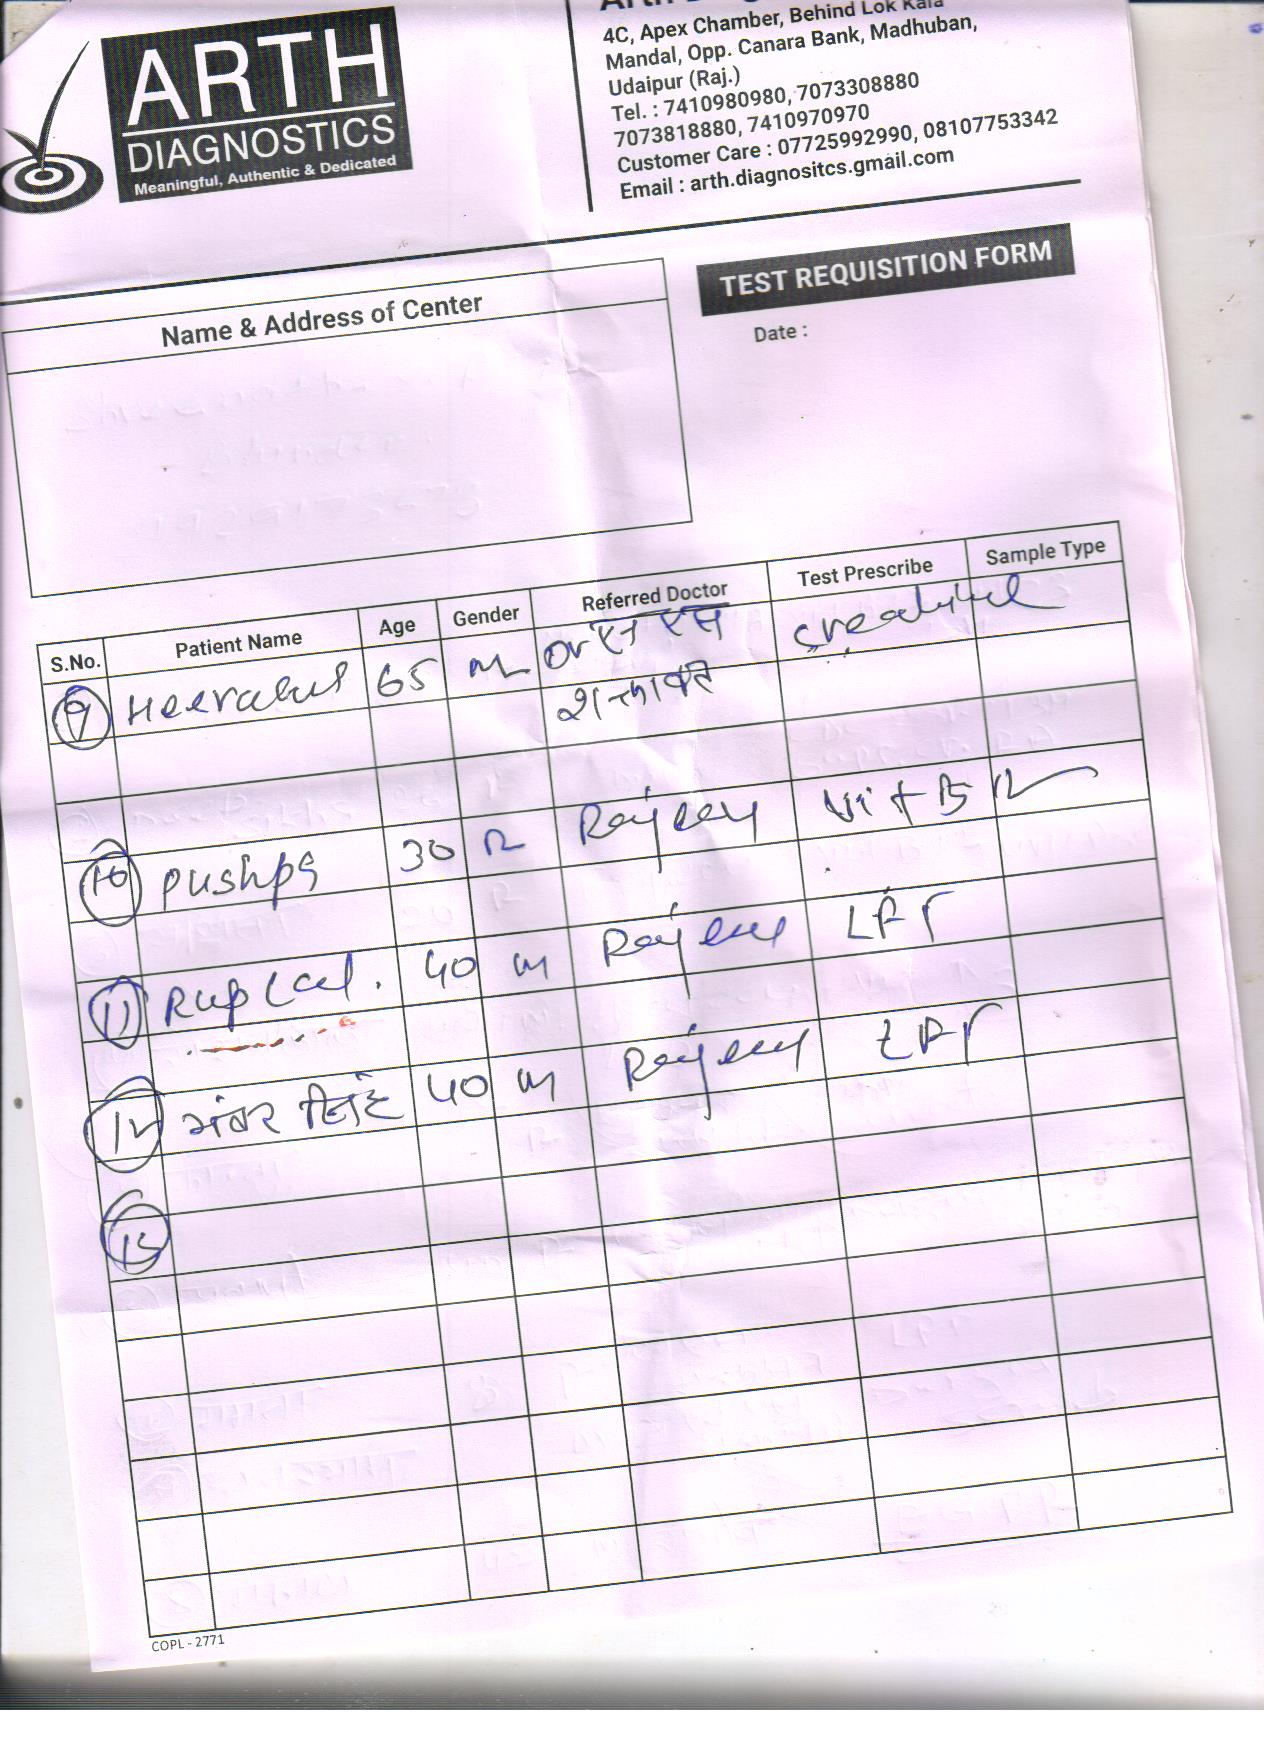 ARTH
DIAGNOSTICS
Meaningful, Authentic & Dedicated
4C, Apex Chamber, Behind Lok Kala
Mandal, Opp. Canara Bank, Madhuban,
Udaipur (Raj.)
Tel. : 7410980980, 7073308880
7073818880, 7410970970
Customer Care : 07725992990, 08107753342
Email : arth.diagnositcs.gmail.com
TEST REQUISITION FORM
Name & Address of Center
Date :
S.No. Patient Name Age Gender Referred Doctor Test Prescribe Sample Type
9 Heeralal 65 M Dr एस एस
10 Pushpa 30 Vit B 12
11 Ruplal. 40 m LFT
12 भंवर सिंह 40 m LFT
13
COPL - 2771